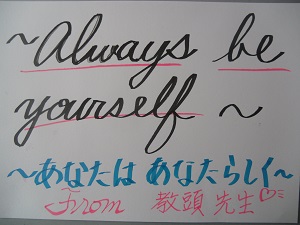 ~Always be
yourself ~
~あなたは あなたらしく~
From 教頭 先生